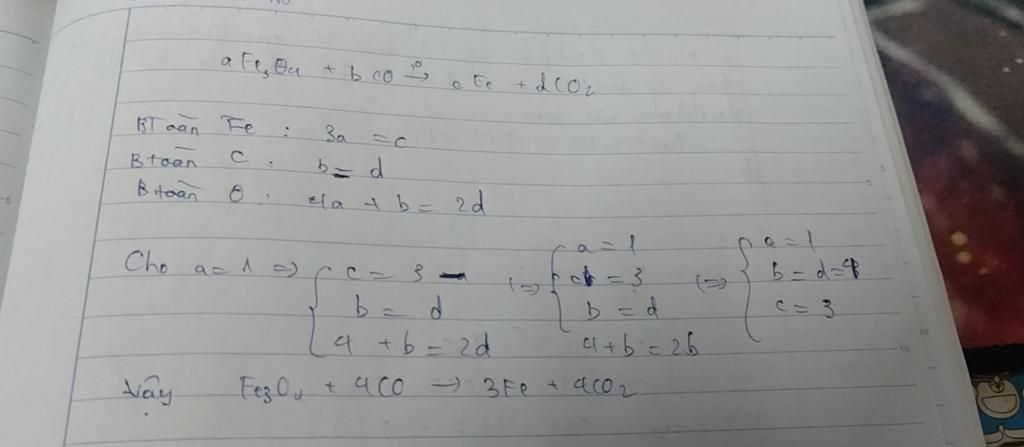 No.
a Fe₃O₄ + b CO →t° c Fe + d CO₂
BT oàn Fe : 3a = c
B toàn C : b = d
B toàn O : 4a + b = 2d
Cho a = 1 => { c = 3 (=> { a = 1 (=> { a = 1
c = 3 b = d = 4
b = d b = d c = 3
4 + b = 2d 4 + b = 2b
Vậy Fe₃O₄ + 4CO → 3Fe + 4CO₂